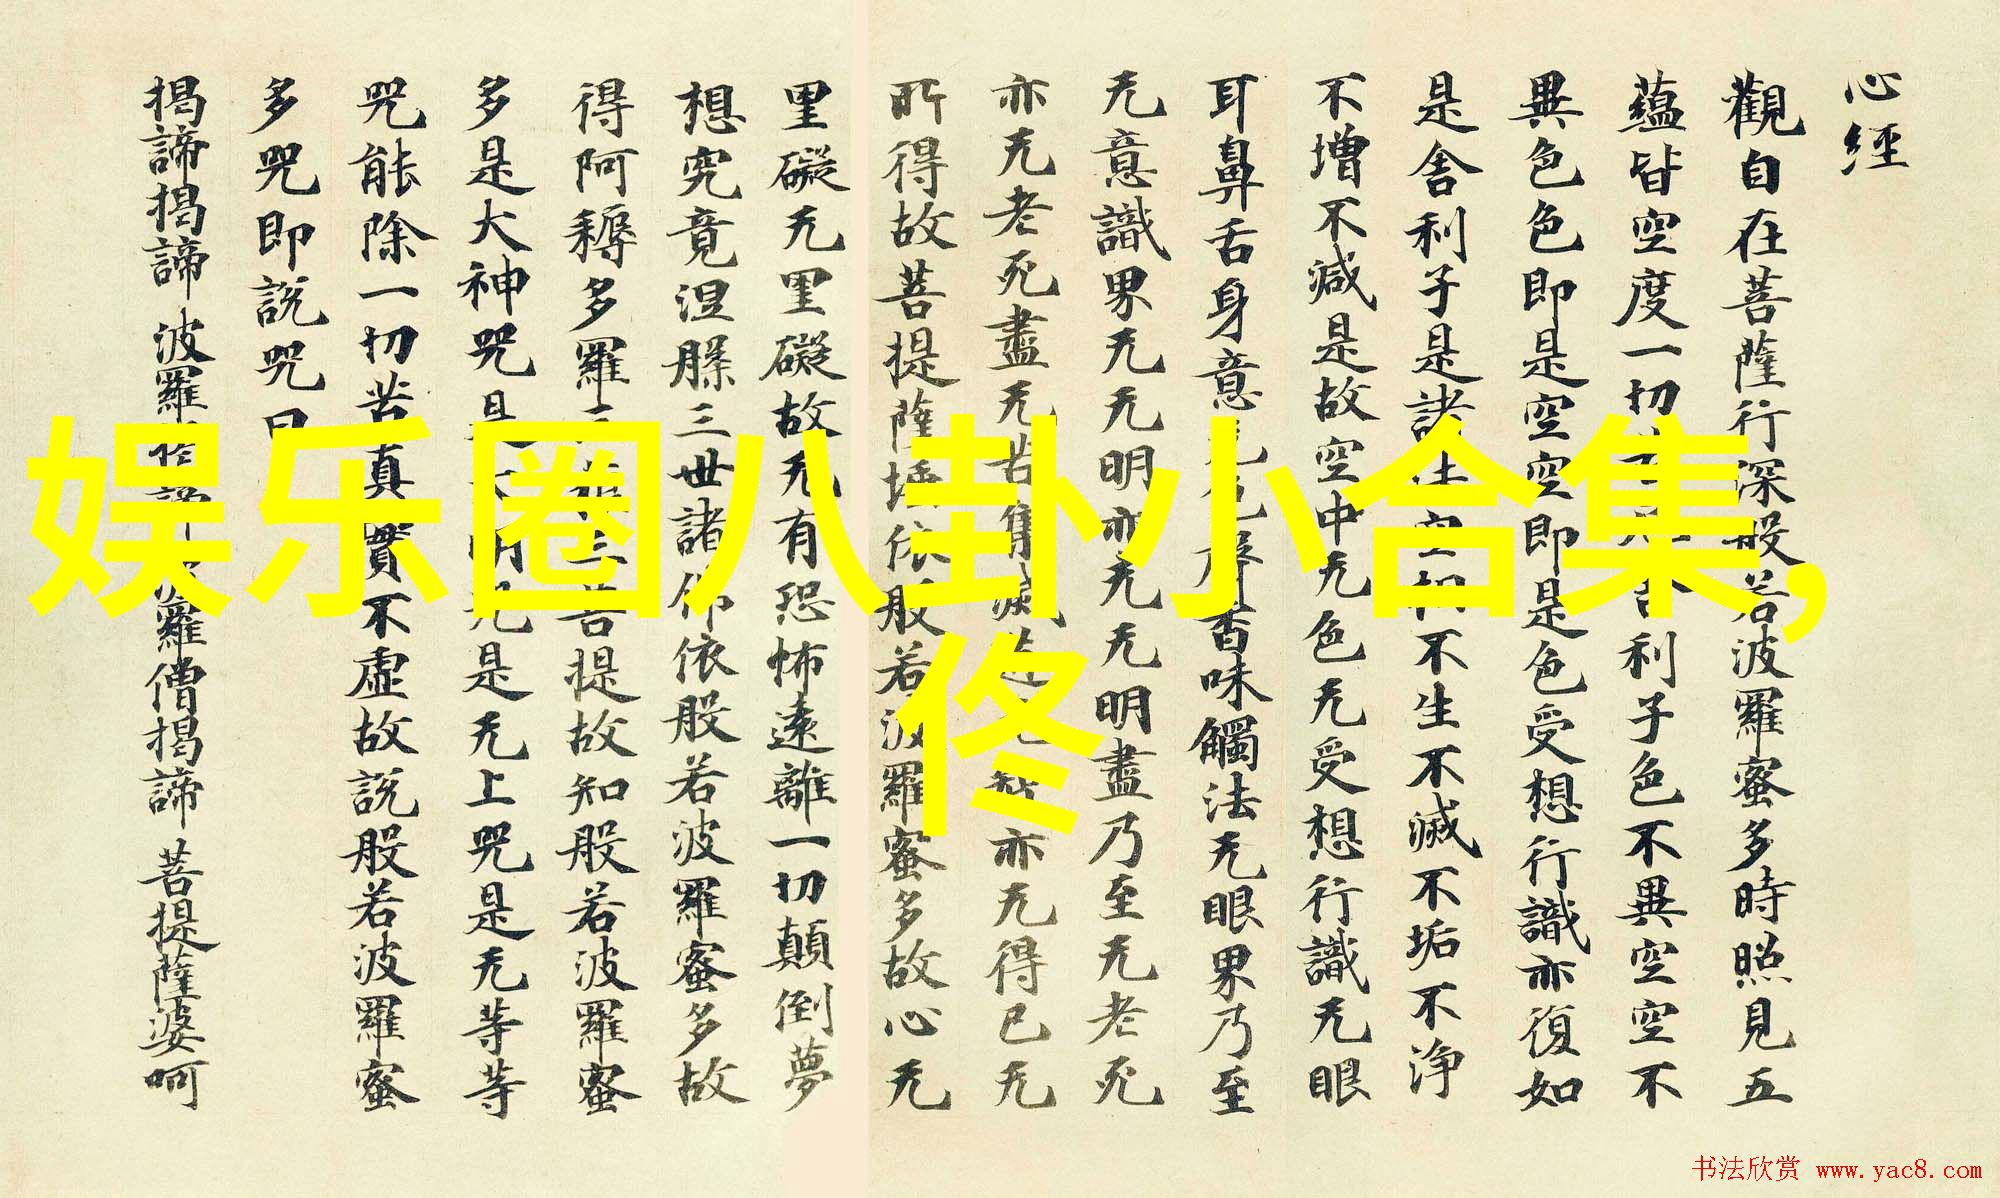 心經
觀自在菩薩行深般若波羅蜜多時照見五
蘊皆空度一切利子色不異空空不
異色色即是空空即是色受想行識亦復如
是舍利子是諸法空相不生不滅不垢不淨
不增不減是故空中无色无受想行識无眼
耳鼻舌身意无聲香味觸法无眼界乃至
无意識界无无明亦无无明盡乃至无老死
亦无老死盡无苦集滅道智亦无得已无
所得故菩提薩埵依般若波羅蜜多故心无
罣礙无罣礙故无有恐怖遠離一切顛倒夢
想究竟涅槃三世諸佛依般若波羅蜜多故
得阿耨多羅三三菩提故知般若波羅蜜
多是大神咒是大明咒是无上咒是无等等
咒能除一切苦真實不虛故說般若波羅蜜
多咒即說咒曰
揭諦揭諦 波羅諦 波羅僧揭諦 菩提薩婆呵
娱乐圈八卦小合集,
佟
书法欣赏 www.yac8.com